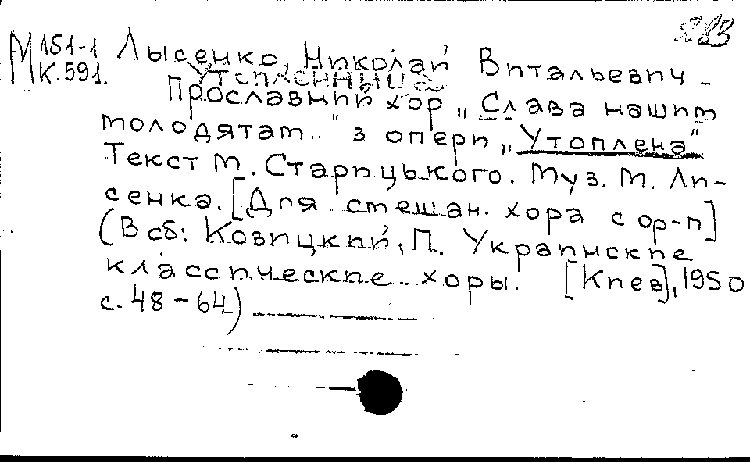 213
М 151-1 Лысенко, Николай Витальевич -
К.591. Утопленница
Прославний хор „Слава нашим
молодятам.." з опери „Утоплена"
Текст М. Старицького. Муз. М. Ли-
сенка. [Для смешан. хора с ор-п]
(В сб: Козицкий, П. Украинские
классические хоры. [Киев], 1950
с. 48-64)